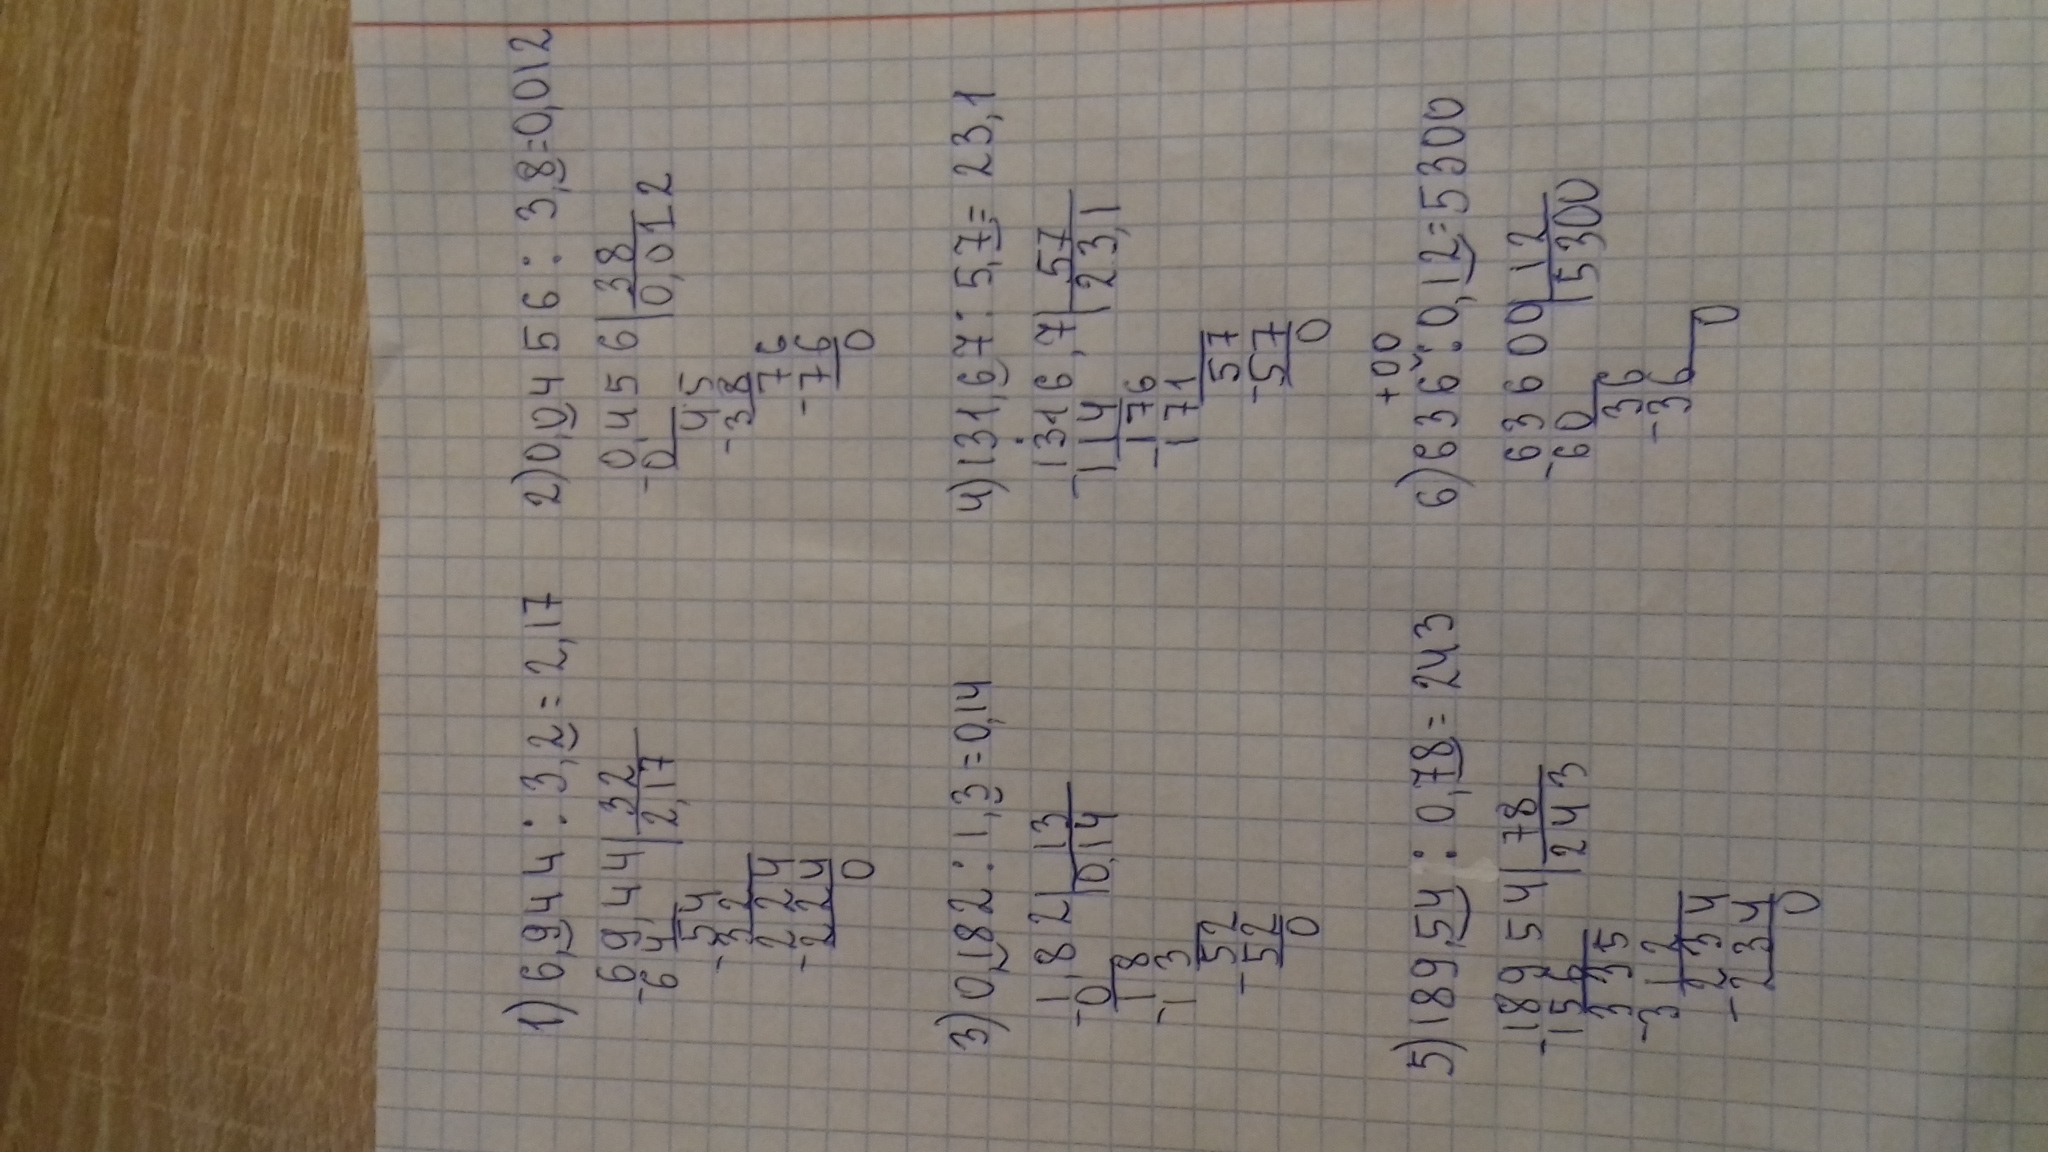 1) 6,944 : 3,2 = 2,17
69,44 | 32
-64 | 2,17
54
-32
224
-224
0
2) 0,0456 : 3,8 = 0,012
0,456 | 38
-0 | 0,012
45
-38
76
-76
0
3) 0,182 : 1,3 = 0,14
1,82 | 13
-0 | 0,14
18
-13
52
-52
0
4) 131,67 : 5,7 = 23,1
1316,7 | 57
-114 | 23,1
-176
171
57
-57
0
5) 189,54 : 0,78 = 243
18954 | 78
-156 | 243
335
-312
234
-234
0
+00
6) 636 : 0,12 = 5300
63600 | 12
-60 | 5300
36
-36
0